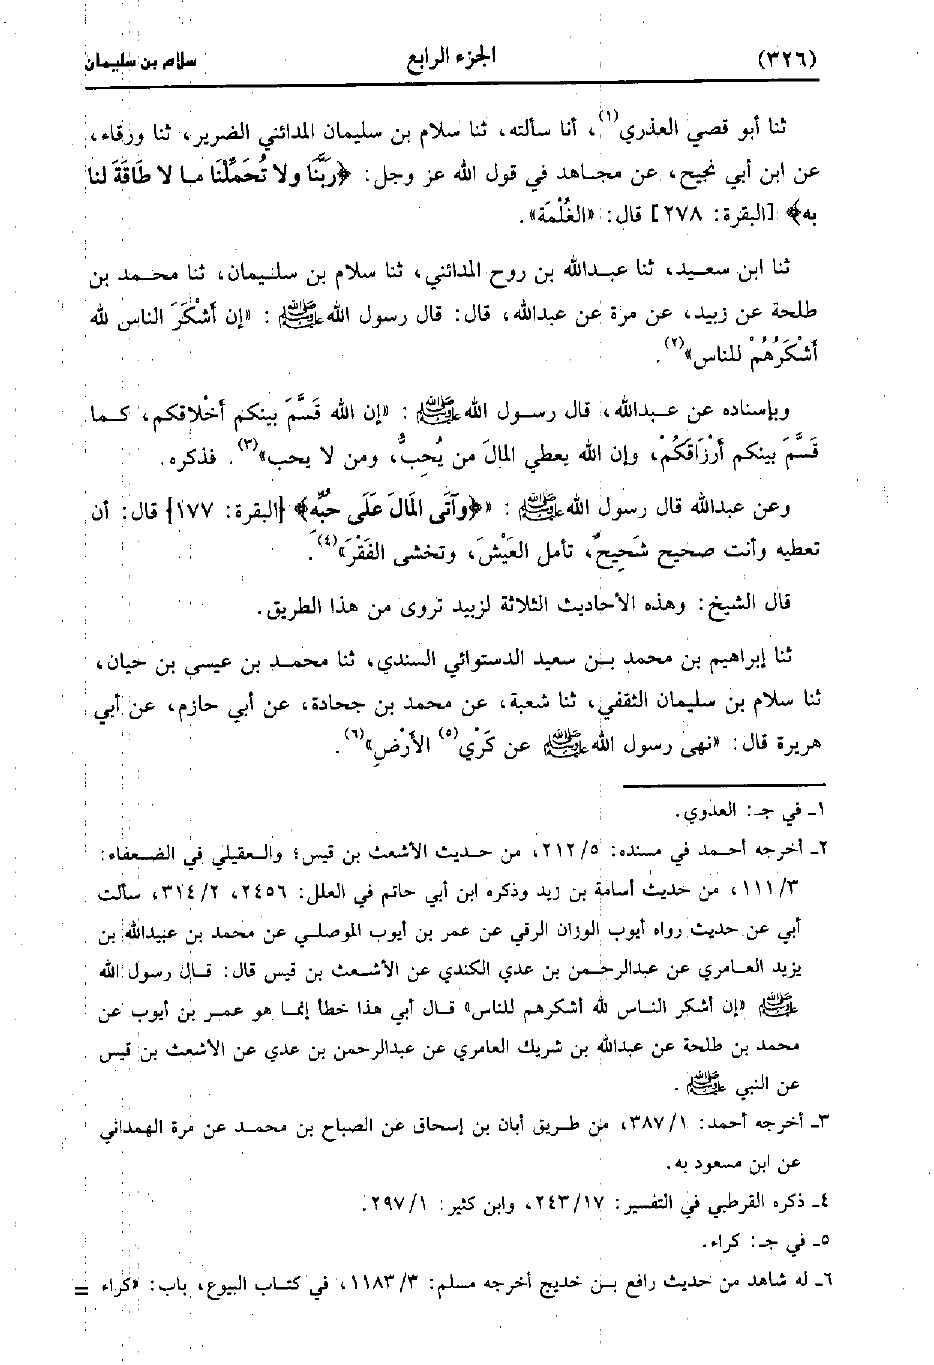 (٣٢٦) الجزء الرابع سلام بن سليمان
ثنا أبو قصي العذري(١)، أنا سألته، ثنا سلام بن سليمان المدائني الضرير، ثنا ورقاء،
عن ابن أبي نجيح، عن مجاهد في قول الله عز وجل: ﴿رَبَّنَا ولا تُحَمِّلْنَا مـا لا طَاقَةَ لنا
به﴾ [البقرة: ٢٧٨] قال: «الغُلْمَة».
ثنا ابن سعيد، ثنا عبدالله بن روح المدائني، ثنا سلام بن سليمان، ثنا محمد بن
طلحة عن زبيد، عن مرة عن عبدالله، قال: قال رسول الله ﷺ : «إن أَشْكَرَ الناس لله
أَشْكَرُهُمْ للناس»(٢).
وبإسناده عن عبدالله، قال رسول الله ﷺ : «إن الله قَسَّمَ بينكم أخْلاقكم، كما
قَسَّمَ بينكم أرْزَاقَكُمْ، وإن الله يعطي المالَ من يُحِبُّ، ومن لا يحب»(٣). فذكره.
وعن عبدالله قال رسول الله ﷺ : «﴿وآتَى المَالَ عَلَى حُبِّه﴾ [البقرة: ١٧٧] قال: أن
تعطيه وأنت صحيح شَحِيحٌ، تأمل العَيْشَ، وتخشى الفَقْرَ»(٤).
قال الشيخ: وهذه الأحاديث الثلاثة لزبيد تروى من هذا الطريق.
ثنا إبراهيم بن محمد بن سعيد الدستوائي السندي، ثنا محمد بن عيسى بن حيان،
ثنا سلام بن سليمان الثقفي، ثنا شعبة، عن محمد بن جحادة، عن أبي حازم، عن أبي
هريرة قال: «نهى رسول الله ﷺ عن كَرْي(٥) الأَرْضِ»(٦).
١ـ في جـ: العدوي.
٢ـ أخرجه أحمد في مسنده: ٢١٢/٥، من حديث الأشعث بن قيس؛ والعقيلي في الضعفاء:
١١١/٣، من حديث أسامة بن زيد وذكره ابن أبي حاتم في العلل: ٢٤٥٦، ٣١٤/٢، سألت
أبي عن حديث رواه أيوب الوزان الرقي عن عمر بن أيوب الموصلي عن محمد بن عبيدالله بن
يزيد العامري عن عبدالرحمن بن عدي الكندي عن الأشعث بن قيس قال: قال رسول الله
ﷺ «إن أشكر الناس لله أشكرهم للناس» قال أبي هذا خطأ إنما هو عمر بن أيوب عن
محمد بن طلحة عن عبدالله بن شريك العامري عن عبدالرحمن بن عدي عن الأشعث بن قيس
عن النبي ﷺ .
٣ـ أخرجه أحمد: ٣٨٧/١، من طريق أبان بن إسحاق عن الصباح بن محمد عن مرة الهمداني
عن ابن مسعود به.
٤ـ ذكره القرطبي في التفسير: ٢٤٣/١٧، وابن كثير: ٢٩٧/١.
٥ـ في جـ: كراء.
٦ـ له شاهد من حديث رافع بن خديج أخرجه مسلم: ١١٨٣/٣، في كتاب البيوع، باب: «كراء =